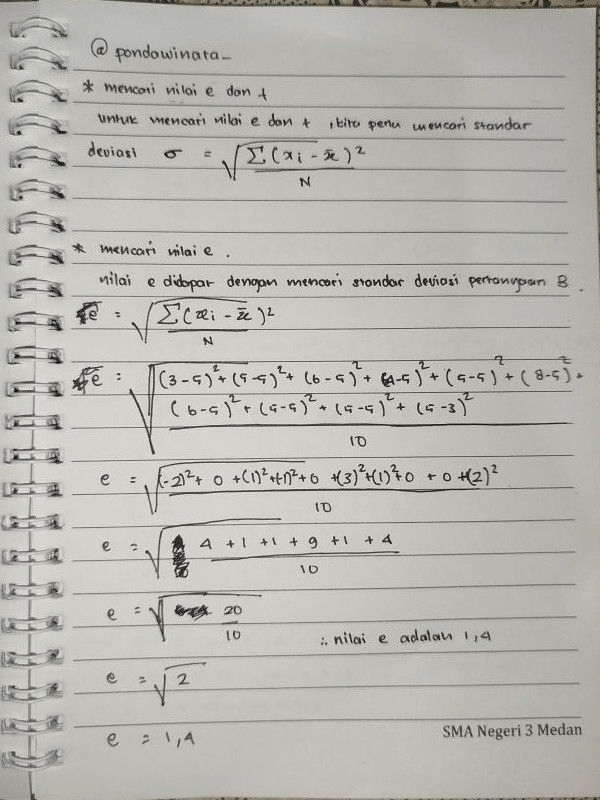 @pondawinata_
* mencari nilai e dan t
untuk mencari nilai e dan t , kita perlu mencari standar
deviasi σ = √(Σ(xi - x̄)² / N)
* mencari nilai e .
nilai e didapar dengan mencari standar deviasi pertanyaan B .
e = √(Σ(xi - x̄)² / N)
e = √((3-5)² + (5-5)² + (6-5)² + (4-5)² + (5-5)² + (8-5)² +
(6-5)² + (5-5)² + (5-5)² + (5-3)² / 10)
e = √((-2)² + 0 + (1)² + (-1)² + 0 + (3)² + (1)² + 0 + 0 + (2)² / 10)
e = √(4 + 1 + 1 + 9 + 1 + 4 / 10)
e = √(20 / 10)
∴ nilai e adalah 1,4
e = √2
e = 1,4
SMA Negeri 3 Medan